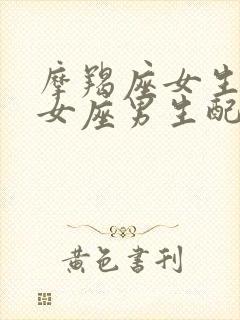 摩羯座女生
女座男生配
黄色書刊